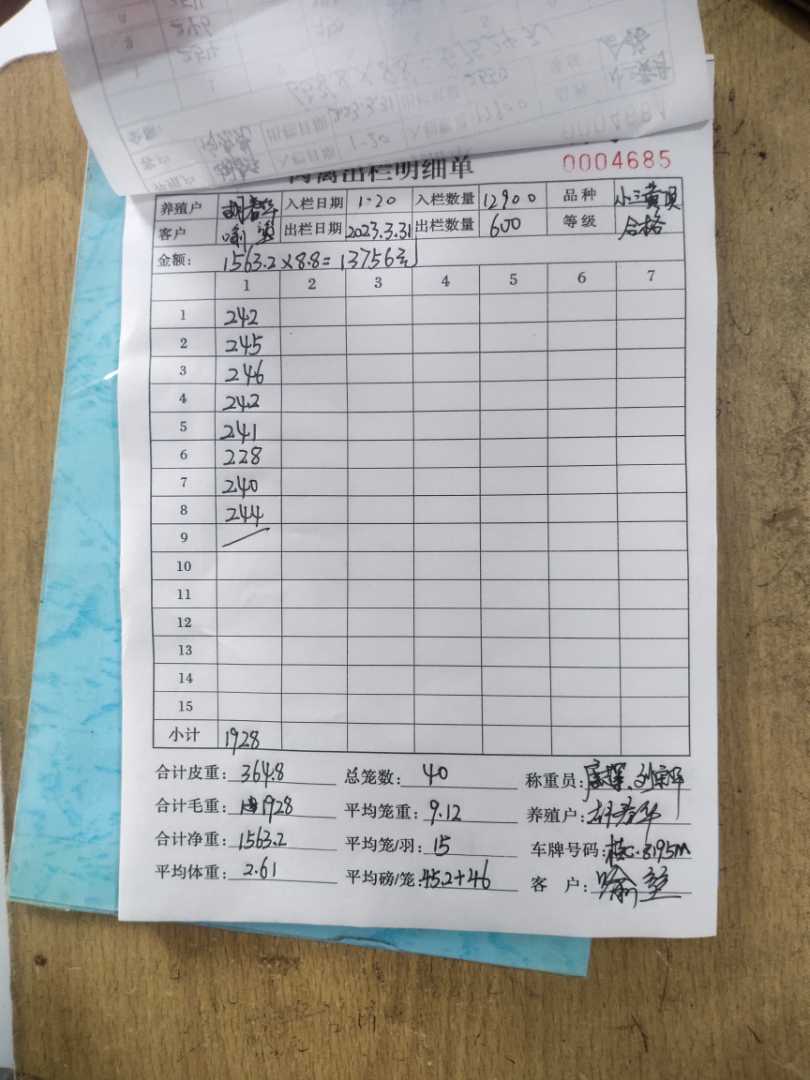 出栏明细单
0004685
养殖户 胡春华 入栏日期 1·20 入栏数量 12900 品种 小三黄项
客户 喻 出栏日期 2023.3.31 出栏数量 600 等级 合格
金额: 1563.2×8.8=13756元
1 2 3 4 5 6 7
1 242
2 245
3 246
4 242
5 241
6 228
7 240
8 244
9
10
11
12
13
14
15
小计 1928
合计皮重: 364.8 总笼数: 40 称重员:
合计毛重: 1928 平均笼重: 9.12 养殖户: 胡春华
合计净重: 1563.2 平均笼/羽: 15 车牌号码: 8195M
平均体重: 2.61 平均磅/笼: 45.2+46 客户: 喻